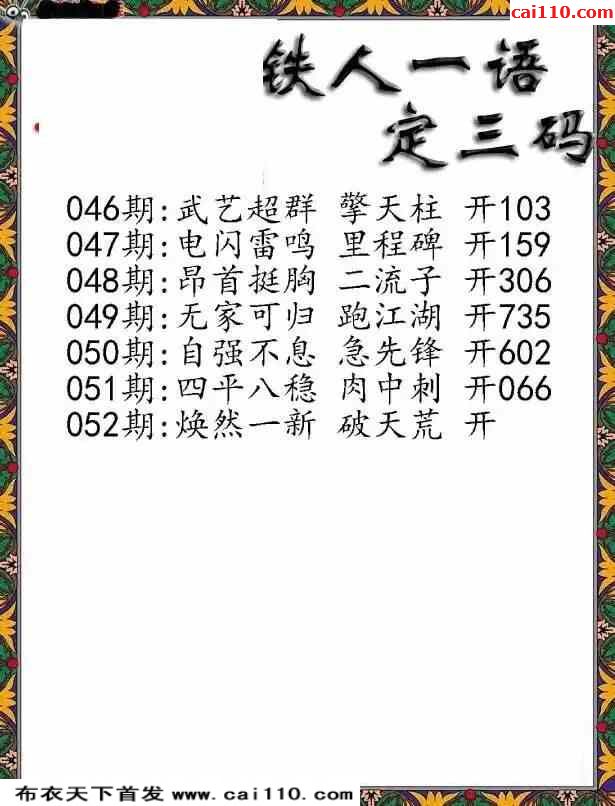 cai110.com
铁人一语
定三码
046期:武艺超群 擎天柱 开103
047期:电闪雷鸣 里程碑 开159
048期:昂首挺胸 二流子 开306
049期:无家可归 跑江湖 开735
050期:自强不息 急先锋 开602
051期:四平八稳 肉中刺 开066
052期:焕然一新 破天荒 开
布衣天下首发 www.cai110.com